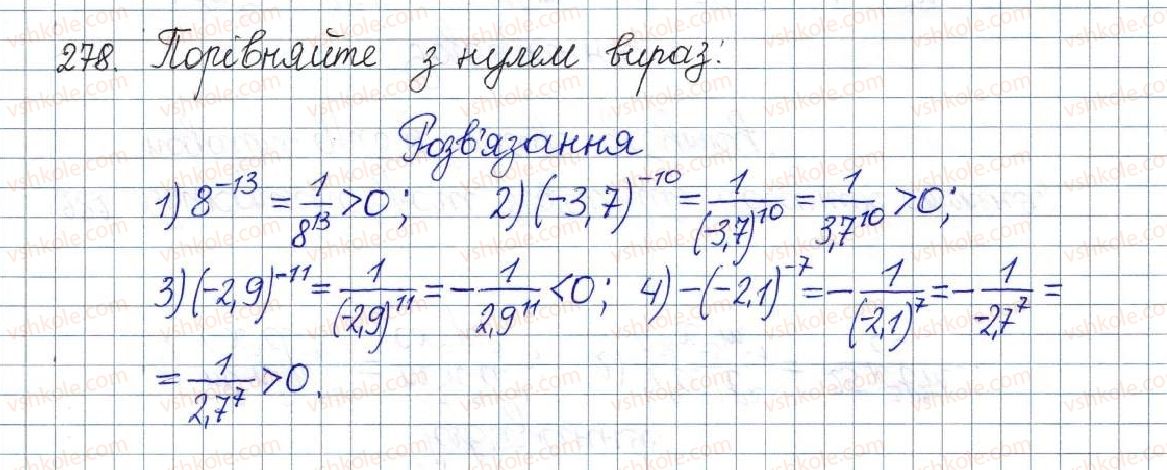 278. Порівняйте з нулем вираз:
Розв'язання
1) 8^{-13} = \frac{1}{8^{13}} > 0; 2) (-3,7)^{-10} = \frac{1}{(-3,7)^{10}} = \frac{1}{3,7^{10}} > 0;
3) (-2,9)^{-11} = \frac{1}{(-2,9)^{11}} = -\frac{1}{2,9^{11}} < 0; 4) -(-2,1)^{-7} = -\frac{1}{(-2,1)^{7}} = -\frac{1}{-2,7^{7}} =
= \frac{1}{2,7^{7}} > 0.